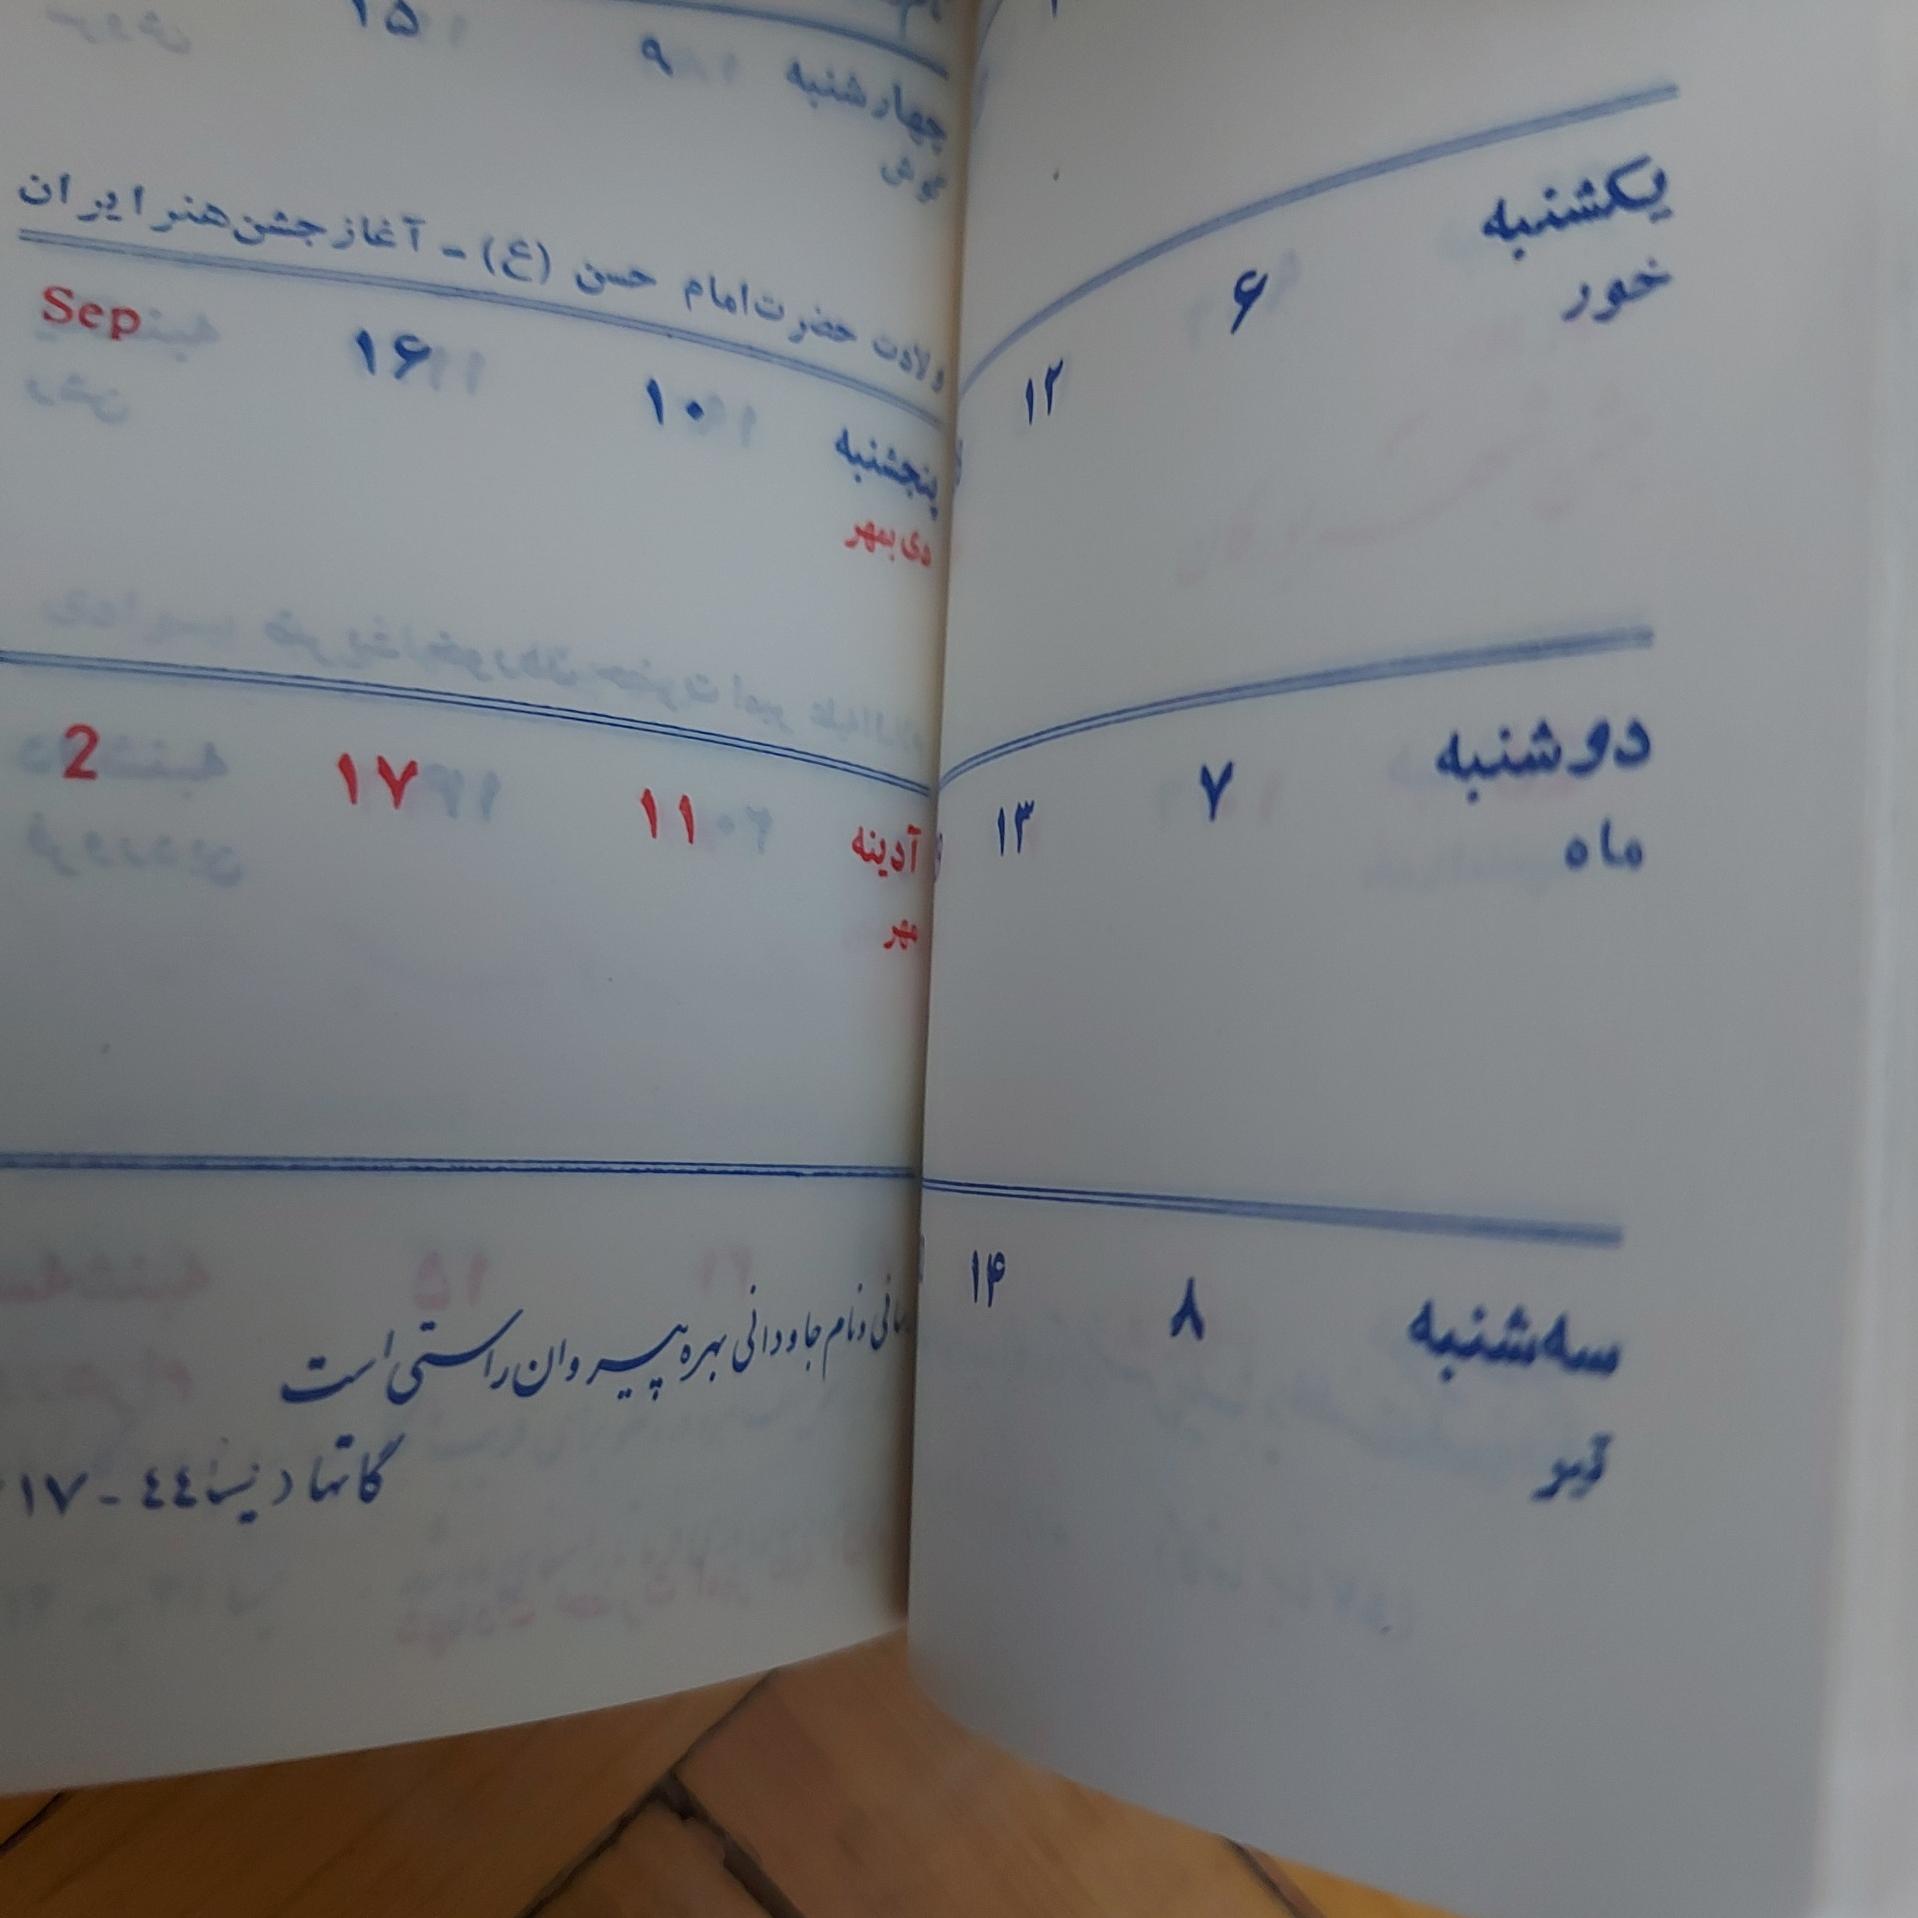 یکشنبه ۶ ۱۲
خور
دوشنبه ۷ ۱۳
ماه
سه‌شنبه ۸ ۱۴
تیر
۱۵
چهارشنبه ۹
گوش
ولادت حضرت امام حسن (ع) - آغاز جشن هنر ایران
پنجشنبه ۱۰ ۱۶ Sep
دی بمهر
آدینه ۱۱ ۱۷ 2
مهر
و نام جاودانی بهره پیروان راستی است
گاتها - یسنا ٤٤ - ۱۷